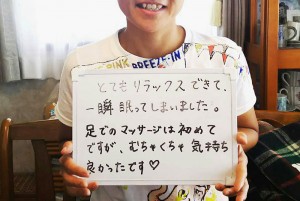 PINK BREEZE-IN
とてもリラックスできて、
一瞬眠ってしまいました。
足でのマッサージは初めて
ですが、むちゃくちゃ気持ち
良かったです♡